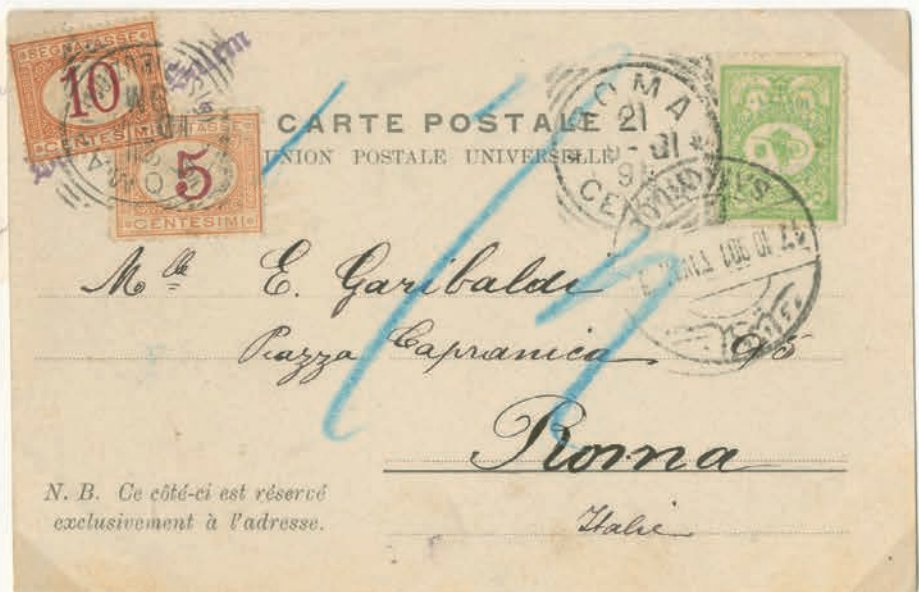 SEGNATASSE
10
CENTESIMI
SEGNATASSE
5
CENTESIMI
CARTE POSTALE
UNION POSTALE UNIVERSELLE
ROMA
21
Mlle E. Garibaldi
Piazza Capranica 95
Roma
Italie
N. B. Ce côté-ci est réservé
exclusivement à l'adresse.